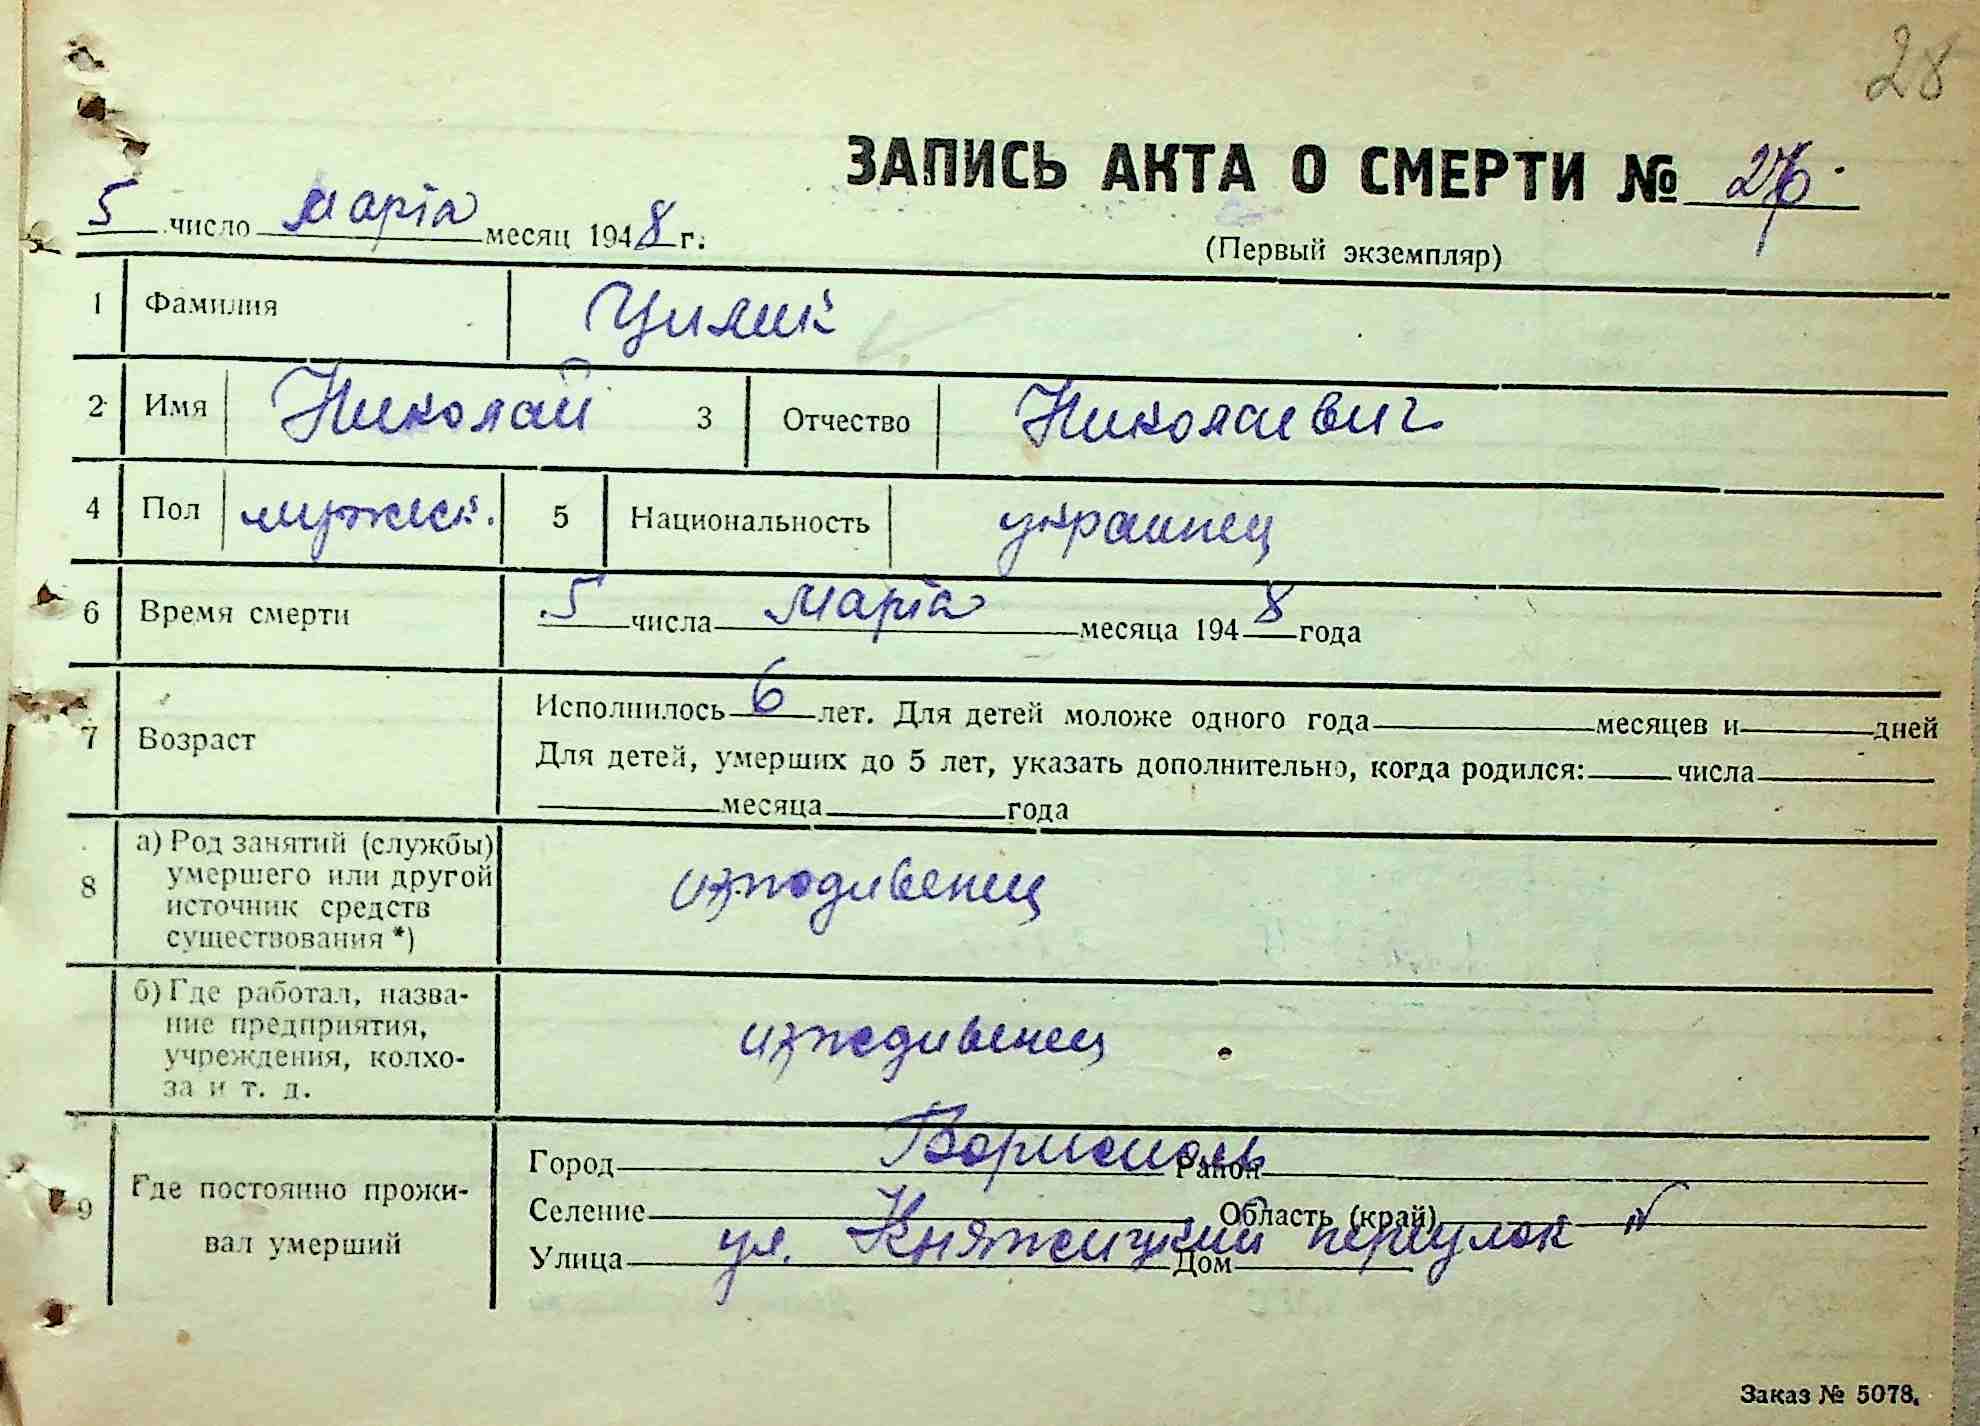 28
ЗАПИСЬ АКТА О СМЕРТИ № 26.
5 число марта месяц 1948 г.
(Первый экземпляр)
1 Фамилия Цимик
2 Имя Николай 3 Отчество Николаевич
4 Пол мужск. 5 Национальность украинец
6 Время смерти 5 числа марта месяца 1948 года
7 Возраст
Исполнилось 6 лет. Для детей моложе одного года месяцев и дней
Для детей, умерших до 5 лет, указать дополнительно, когда родился: числа
месяца года
8
а) Род занятий (службы)
умершего или другой
источник средств
существования *)
иждивенец
б) Где работал, назва-
ние предприятия,
учреждения, колхо-
за и т. д.
иждивенец
9
Где постоянно прожи-
вал умерший
Город Борисполь Район
Селение Область (край)
Улица ул. Княжицкий переулок № Дом
Заказ № 5078.